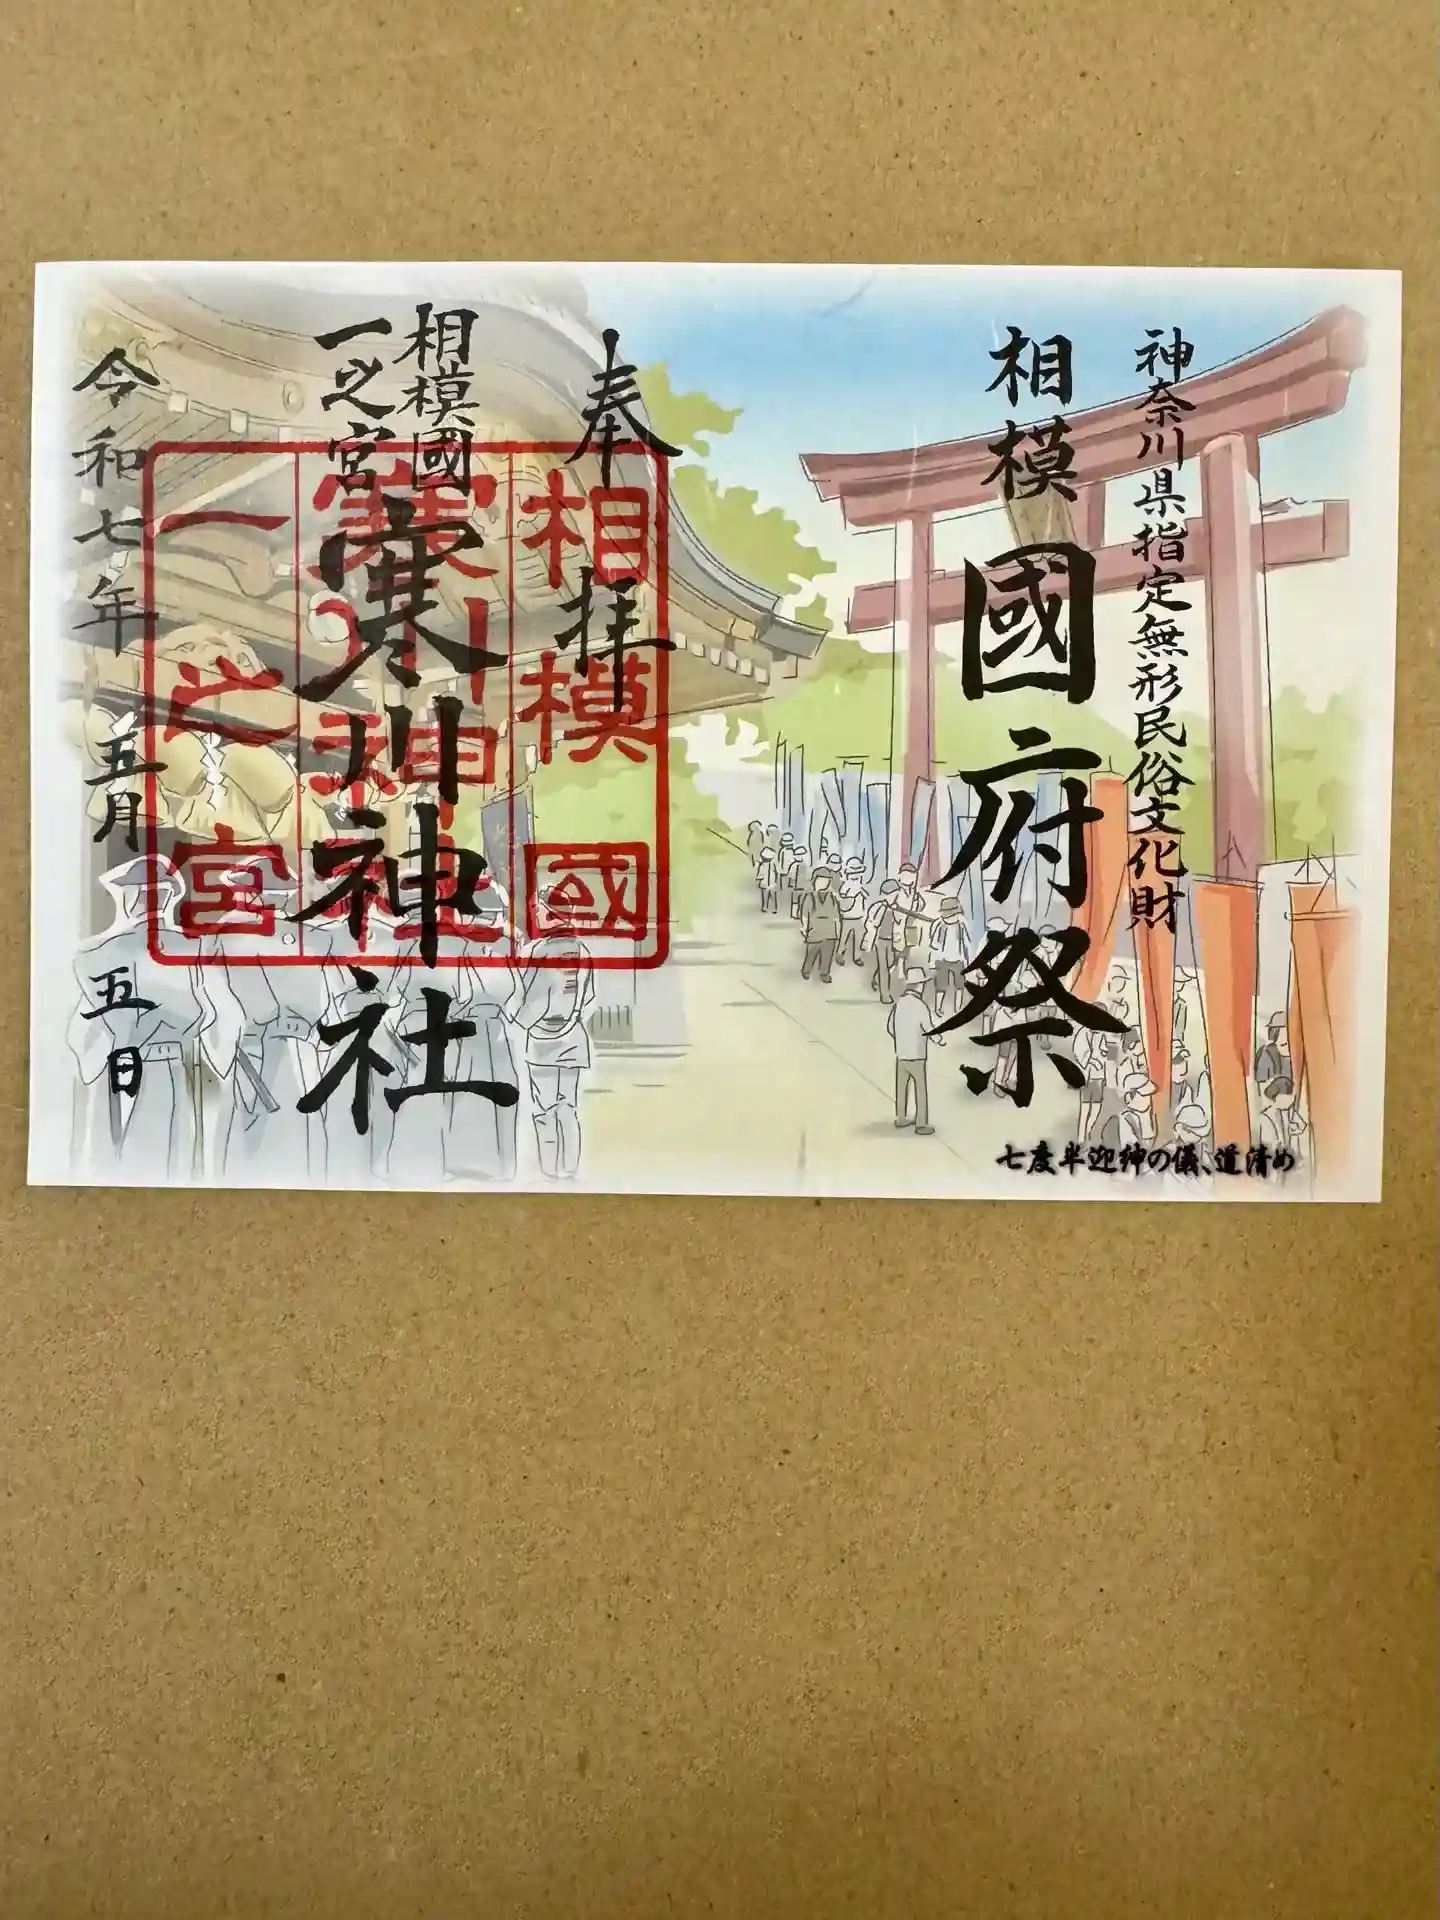 神奈川県指定無形民俗文化財
相模國府祭
七度半迎神の儀、道清め
奉拝
相模國
一之宮
寒川神社
令和七年五月五日
相模國
寒川神社
一之宮